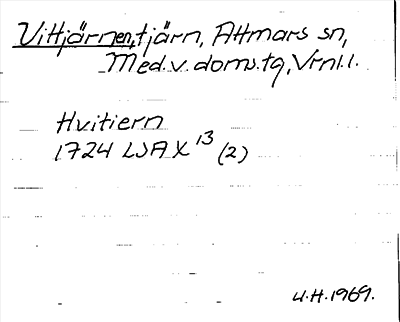 Vittjärnen, tjärn, Attmars sn,
Med.v.doms.tg, Vrnl.l.
Hvitiern
1724 LSA X 13 (2)
U.H. 1969.